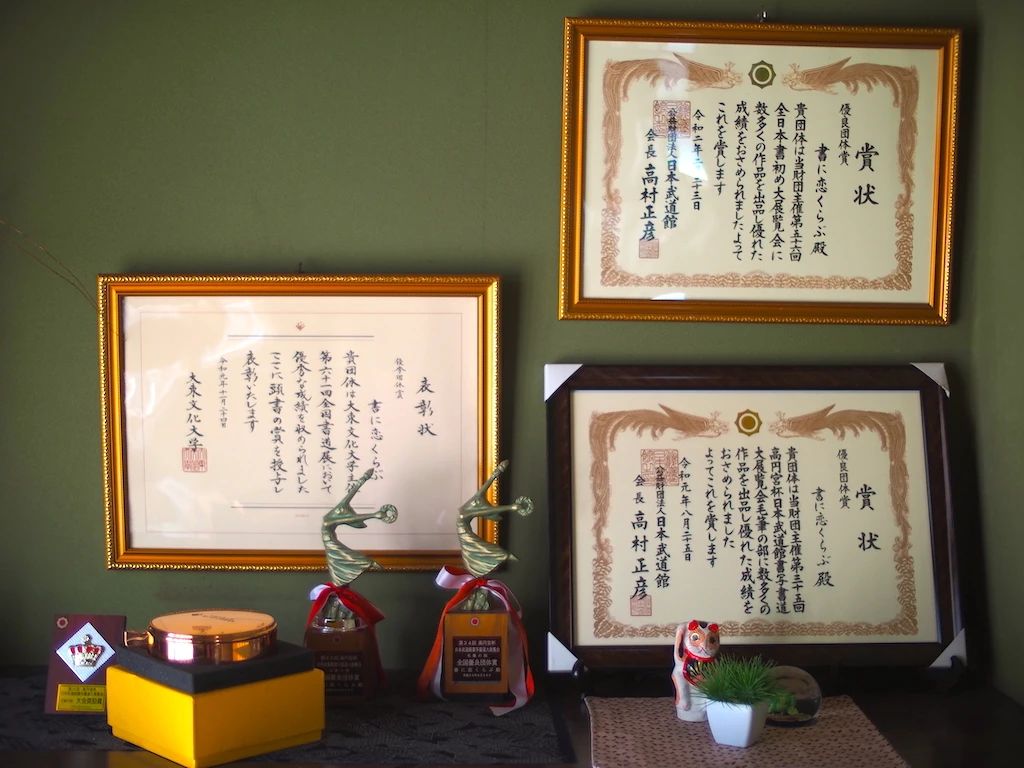 賞状
優良団体賞
書に恋くらぶ殿
貴団体は当財団主催第五十六回
全日本書初め大展覧会に
数多くの作品を出品し優れた
成績をおさめられましたよって
これを賞します
令和二年 二十三日
公益財団法人日本武道館
会長 高村正彦
表彰状
優秀団体賞
書に恋くらぶ
貴団体は大東文化大学主
第六十一回全国書道展において
優秀な成績を収められました
ここに頭書の賞を授与し
表彰いたします
令和元年十一月二十四日
大東文化大学
賞状
優良団体賞
書に恋くらぶ殿
貴団体は当財団主催第三十五回
高円宮杯日本武道館書写書道
大展覧会毛筆の部に数多くの
作品を出品し優れた成績を
おさめられました
よってこれを賞します
令和元年八月二十五日
公益財団法人日本武道館
会長 高村正彦
高円宮杯
日本武道館書写書道大展覧会
毛筆の部
全国優良団体賞
書に恋くらぶ殿